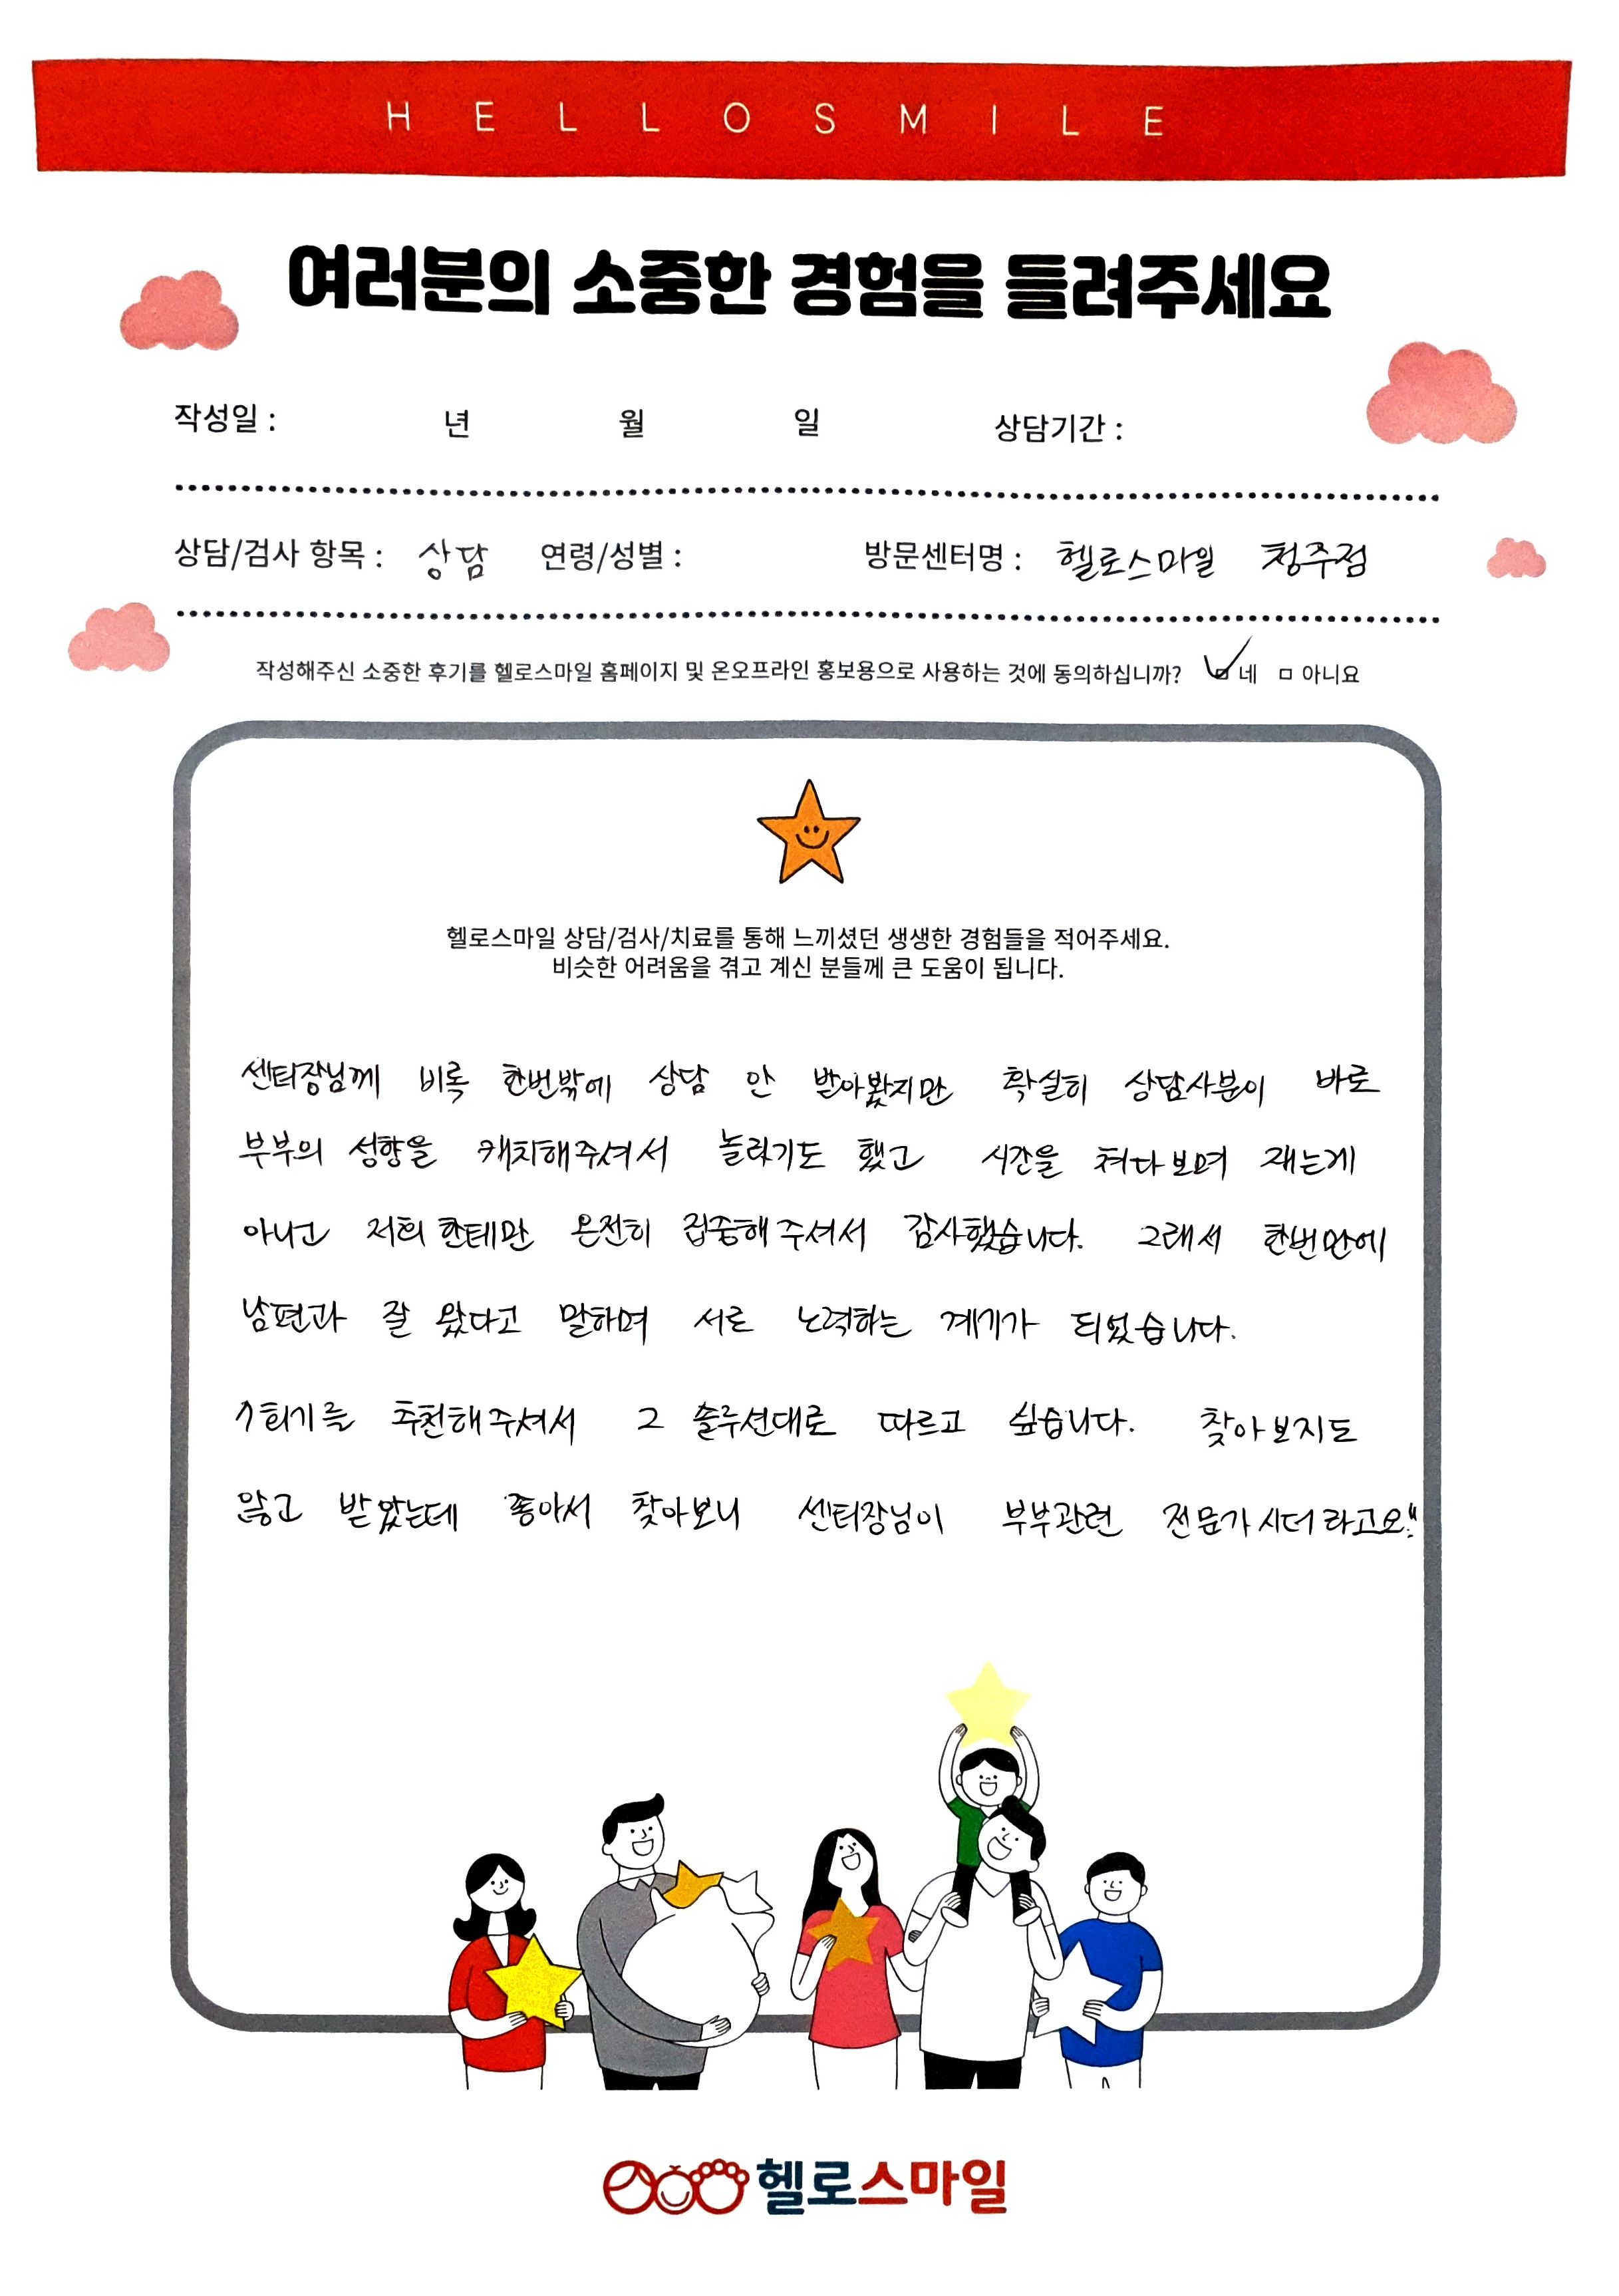 HELLOSMILE
여러분의 소중한 경험을 들려주세요
작성일 : 년 월 일 상담기간 :
상담/검사 항목 : 상담 연령/성별 : 방문센터명 : 헬로스마일 청주점
작성해주신 소중한 후기를 헬로스마일 홈페이지 및 온오프라인 홍보용으로 사용하는 것에 동의하십니까? 네 아니요
헬로스마일 상담/검사/치료를 통해 느끼셨던 생생한 경험들을 적어주세요.
비슷한 어려움을 겪고 계신 분들께 큰 도움이 됩니다.
센터장님께 비록 한번밖에 상담 안 받아봤지만 확실히 상담사분이 바로
부부의 성향을 캐치해주셔서 놀라기도 했고 시간을 쳐다보며 재는게
아니고 저희한테만 온전히 집중해주셔서 감사했습니다. 그래서 한번만에
남편과 잘 왔다고 말하며 서로 노력하는 계기가 되었습니다.
추천해주셔서 그 솔루션대로 따르고 싶습니다. 찾아보지도
않고 받았는데 좋아서 찾아보니 센터장님이 부부관련 전문가시더라고요!!
헬로스마일